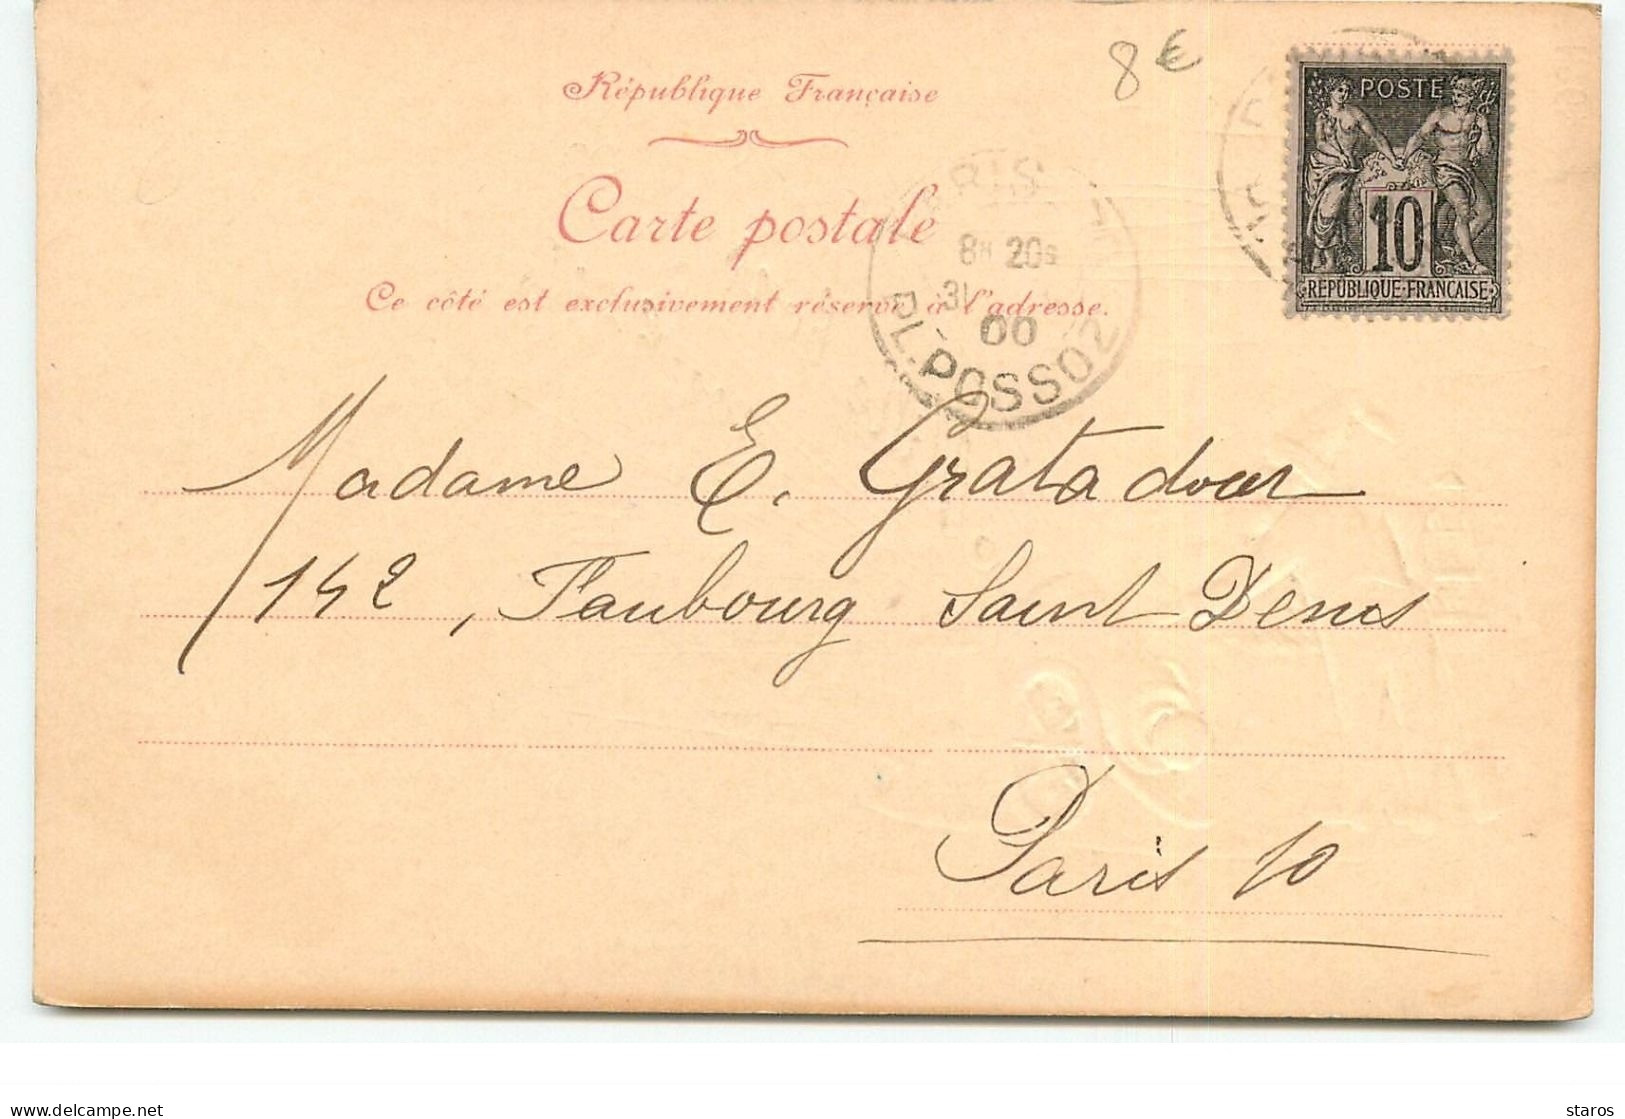 8€
République Française
POSTE
10
RÉPUBLIQUE-FRANÇAISE
Carte postale
Ce côté est exclusivement réservé à l'adresse.
8H 20S
31
00
PL. POSSOZ
Madame E. Gratadour
142, Faubourg Saint Denis
Paris 10
delcampe.net
staros